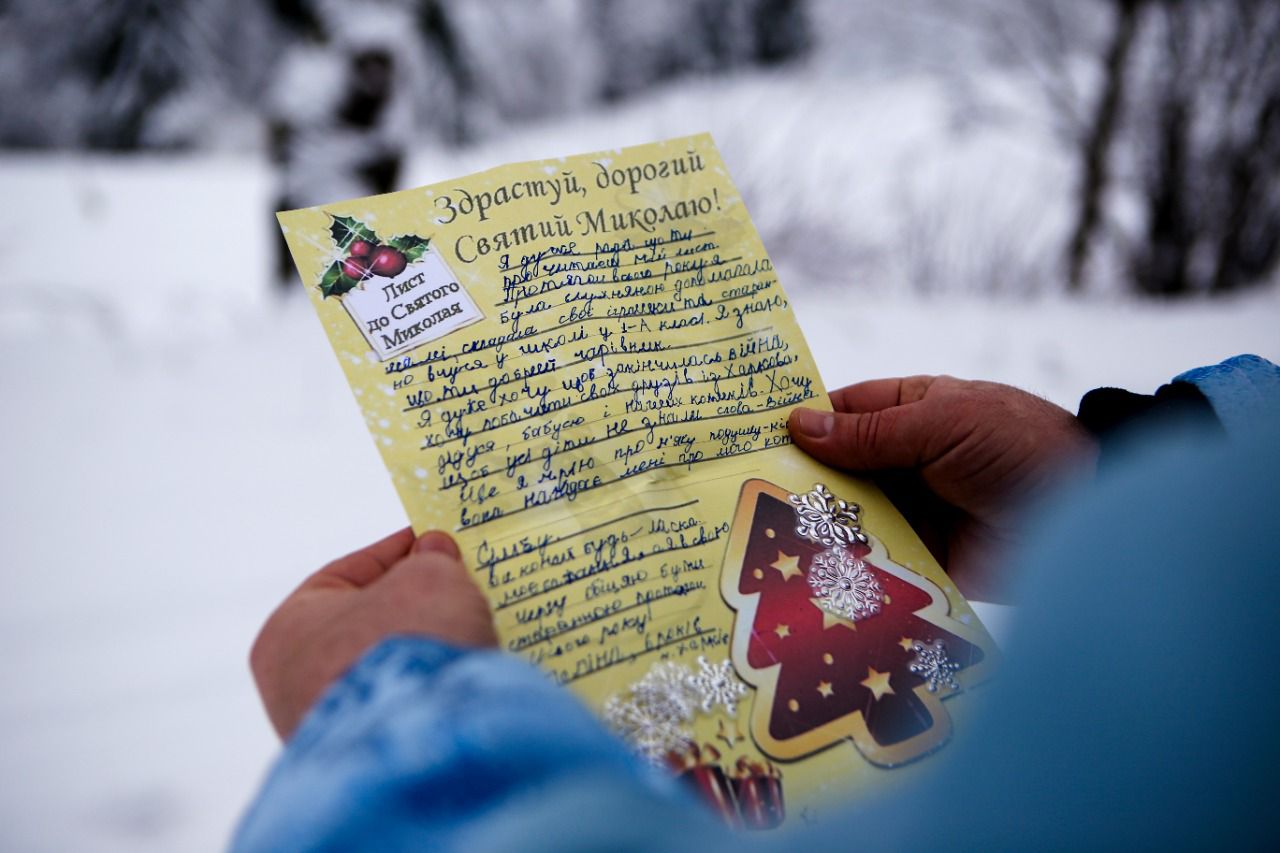 Здрастуй, дорогий
Святий Миколаю!
Лист
до Святого
Миколая
Я дуже рада що ти
прочитаєш мій лист.
Протягом всього року я
була слухняною допомагала
мамі, складала свої іграшки та старан-
но вчуся у школі у 1-А класі. Я знаю,
що ти добрий чарівник.
Я дуже хочу щоб закінчилась війна,
хочу побачити своїх друзів із Харкова,
дідуся, бабусю і наших котиків. Хочу
щоб усі діти не знали слова-Війна
Ще я мрію про м'яку подушку-кі
вона нагадає мені про мого кот
Сімбу.
Виконай будь-ласка
моє бажання, а я в свою
чергу обіцяю бути
старанною протягом
цілого року!
ліна, 6 років
м. Харків